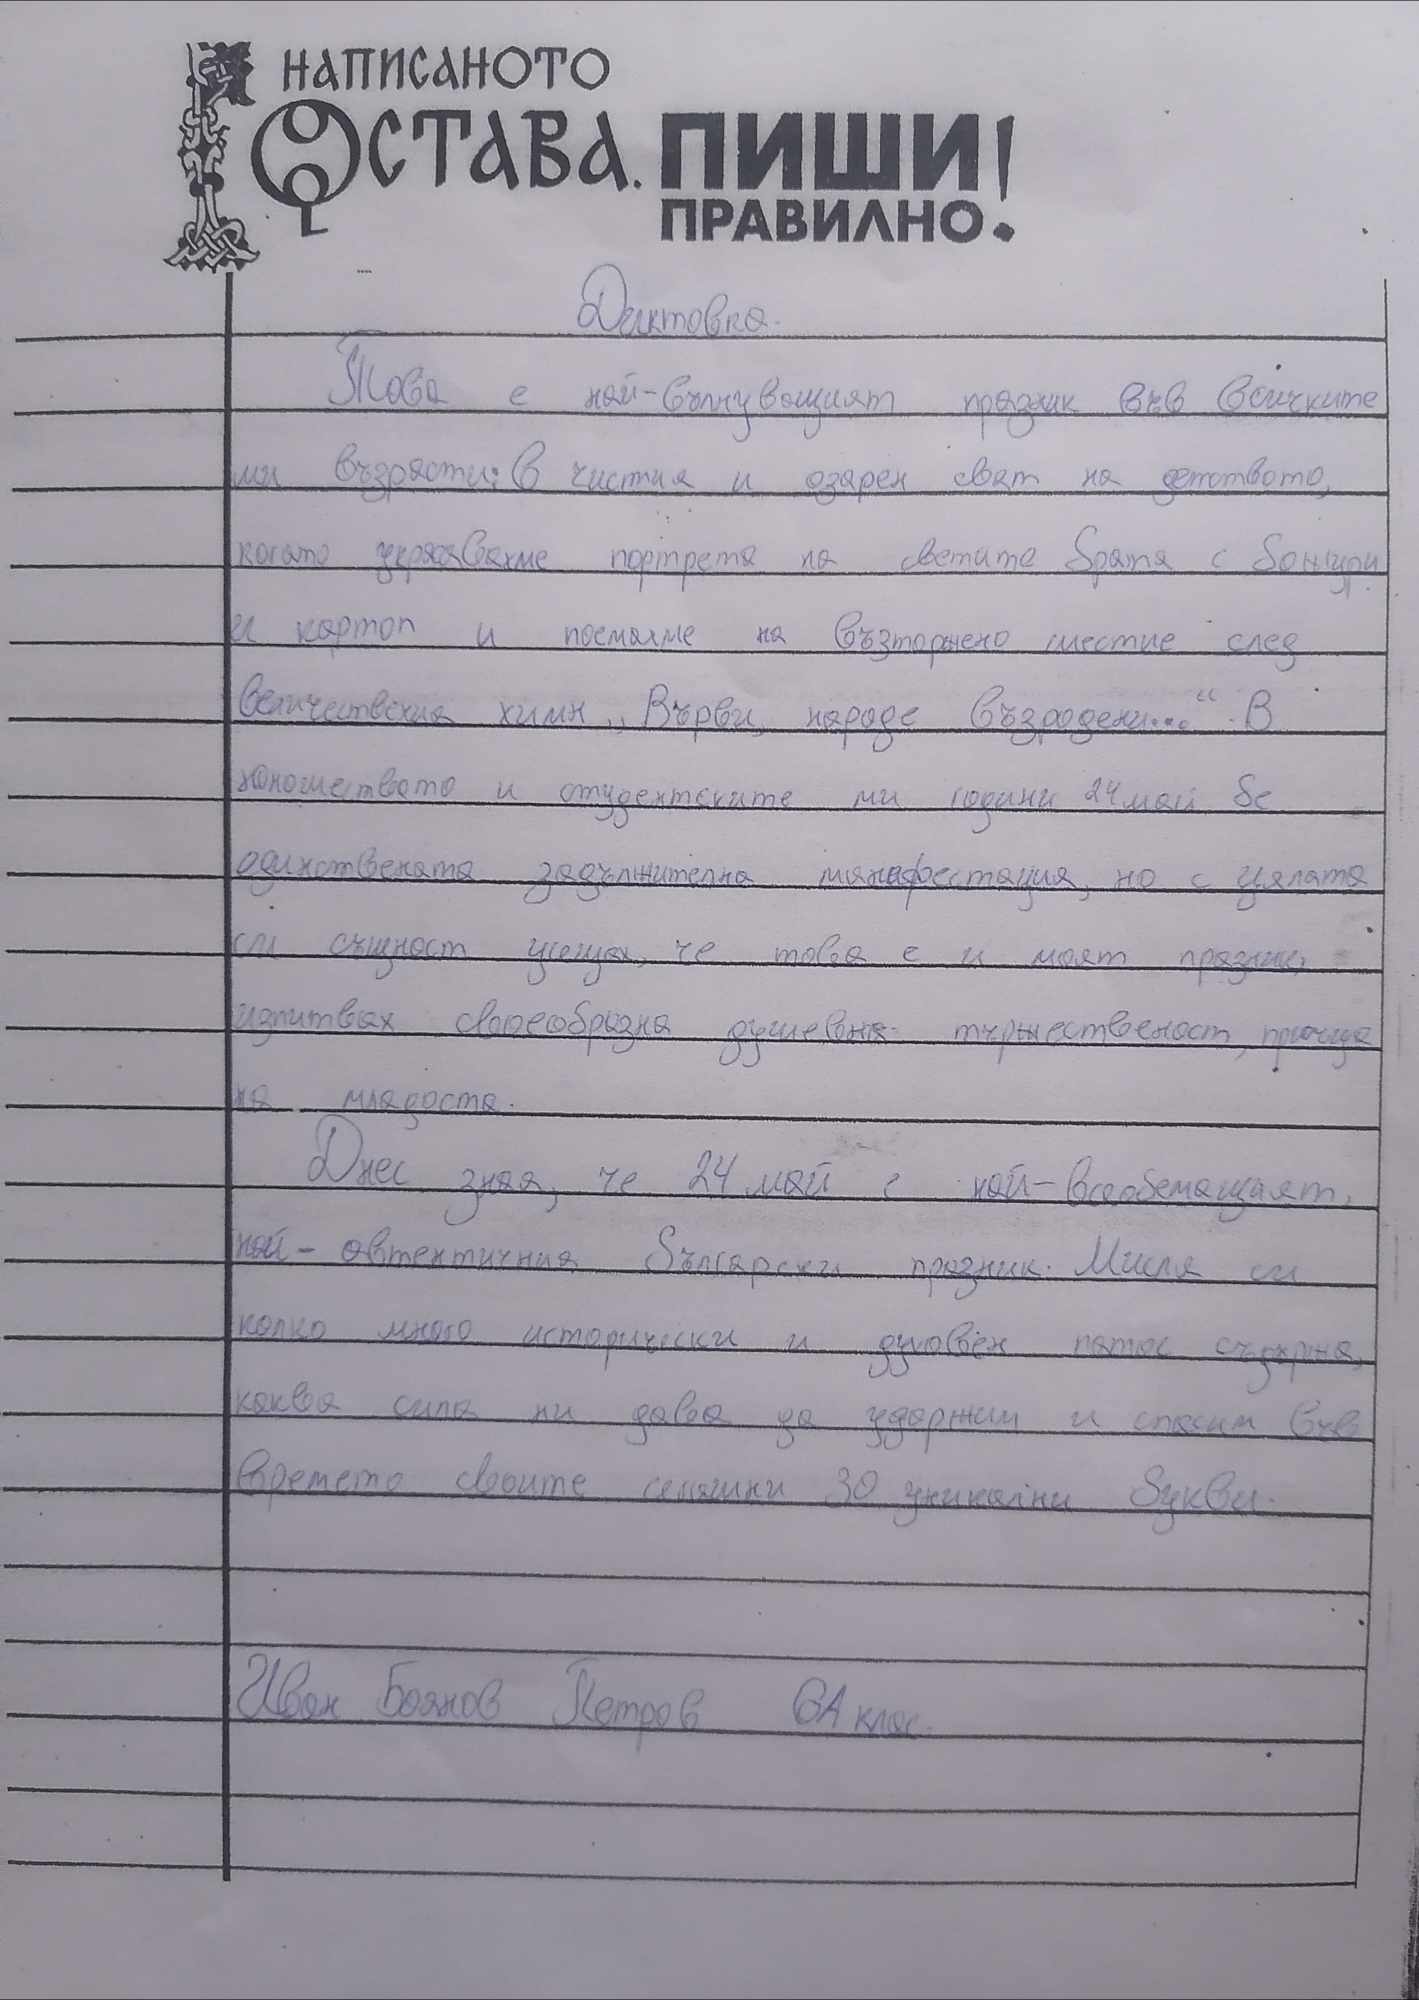 НАПИСАНОТО
ОСТАВА. ПИШИ!
ПРАВИЛНО.
Диктовка.
Това е най-вълнуващият празник във всичките
ми възрасти: в чистия и озарен свят на детството,
когато украсявахме портрета на светите братя с божури
и картоп и поемахме на възторжено шествие след
величествения химн „Върви, народе възродени..." В
юношеството и студентските ми години 24 май бе
единствената задължителна манифестация, но с цялата
си същност усещах, че това е и моят празник,
изпитвах своеобразна душевна тържественост, присъща
на младоста.
Днес зная, че 24 май е най-всеобемащият,
най-автентичния български празник. Мисля си
колко много исторически и духовен патос съдържа,
каква сила ни дава да удържим и спасим във
времето своите 30 уникални букви.
Иван Боянов Петров 6А клас.